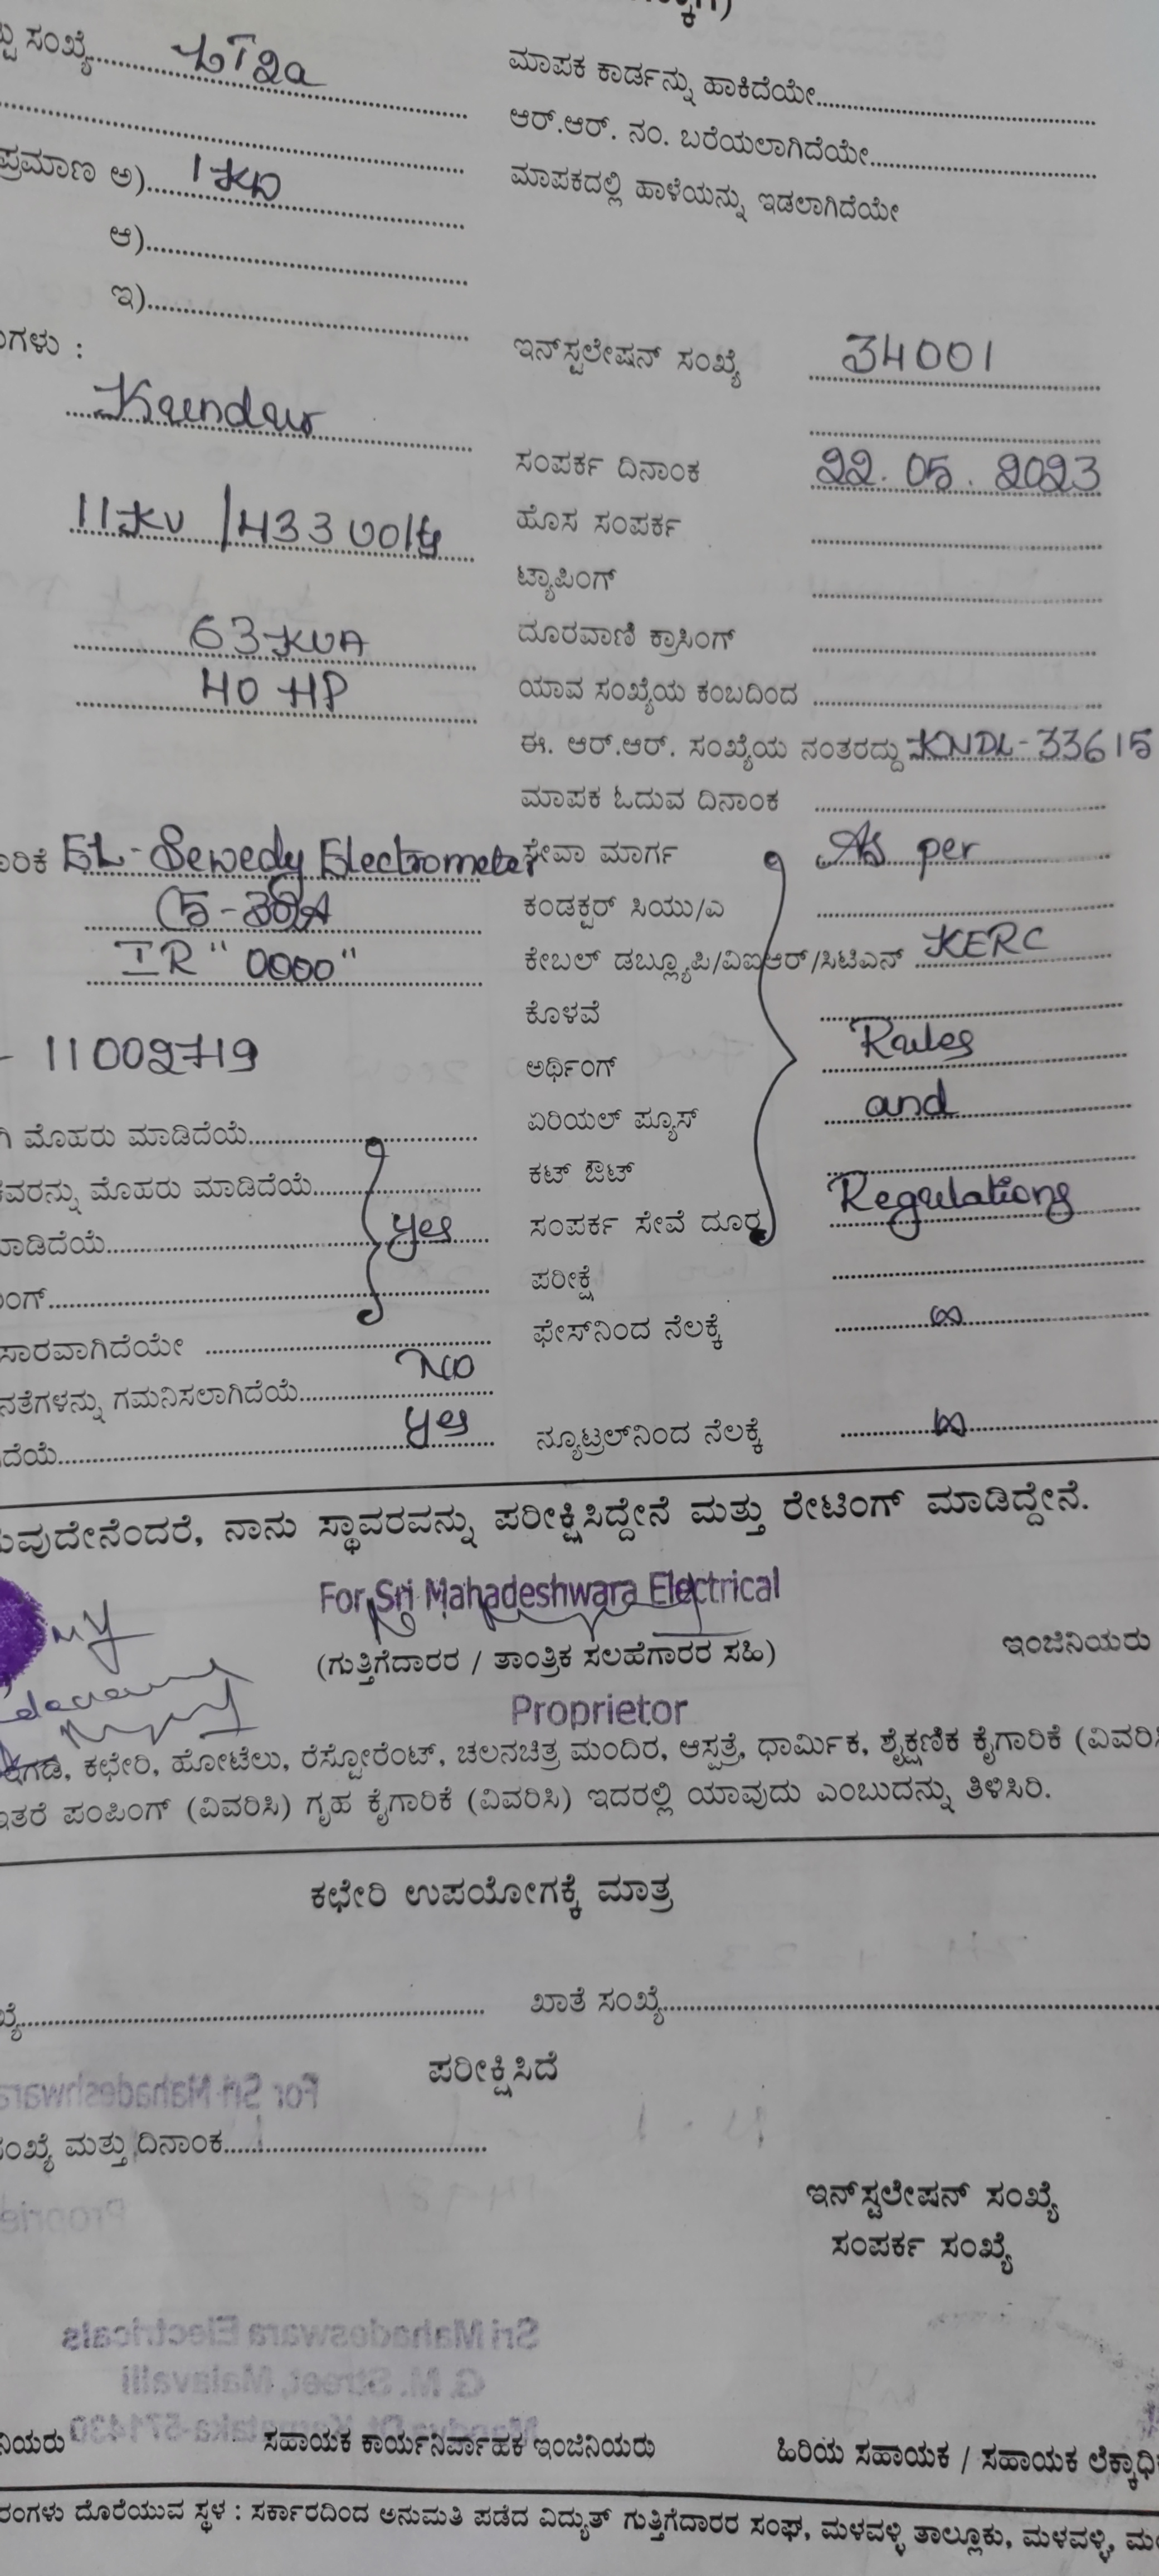 ಸಂಖ್ಯೆ LT2a
ಮಾಪಕ ಕಾರ್ಡನ್ನು ಹಾಕಿದೆಯೇ
ಆರ್.ಆರ್. ನಂ. ಬರೆಯಲಾಗಿದೆಯೇ
ಪ್ರಮಾಣ ಅ) 1 KW
ಮಾಪಕದಲ್ಲಿ ಹಾಳೆಯನ್ನು ಇಡಲಾಗಿದೆಯೇ
ಆ)
ಇ)
ಇನ್‌ಸ್ಟಲೇಷನ್ ಸಂಖ್ಯೆ 34001
Kundur
ಸಂಪರ್ಕ ದಿನಾಂಕ 22.05.2023
11KV / 433 Volts ಹೊಸ ಸಂಪರ್ಕ
ಟ್ಯಾಪಿಂಗ್
63 KVA ದೂರವಾಣಿ ಕ್ರಾಸಿಂಗ್
40 HP ಯಾವ ಸಂಖ್ಯೆಯ ಕಂಬದಿಂದ
ಈ. ಆರ್.ಆರ್. ಸಂಖ್ಯೆಯ ನಂತರದ್ದು KNDL-33615
ಮಾಪಕ ಓದುವ ದಿನಾಂಕ
EL-Sewedy Electrometer ಸೇವಾ ಮಾರ್ಗ As per
ಕಂಡಕ್ಟರ್ ಸಿಯು/ಎ
IR "0000" ಕೇಬಲ್ ಡಬ್ಲ್ಯೂಪಿ/ವಿಐಆರ್/ಸಿಟಿಎನ್ KERC
ಕೊಳವೆ
11002719 ಅರ್ಥಿಂಗ್ Rules
ಮೊಹರು ಮಾಡಿದೆಯೆ ಏರಿಯಲ್ ಪ್ಯೂಸ್ and
ಮೊಹರು ಮಾಡಿದೆಯೆ ಕಟ್ ಔಟ್
yes ಸಂಪರ್ಕ ಸೇವೆ ದೂರ Regulations
ಪರೀಕ್ಷೆ
ಫೇಸ್‌ನಿಂದ ನೆಲಕ್ಕೆ ∞
No
ಗಮನಿಸಲಾಗಿದೆಯೆ
yes ನ್ಯೂಟ್ರಲ್‌ನಿಂದ ನೆಲಕ್ಕೆ ∞
ನಾನು ಸ್ಥಾವರವನ್ನು ಪರೀಕ್ಷಿಸಿದ್ದೇನೆ ಮತ್ತು ರೇಟಿಂಗ್ ಮಾಡಿದ್ದೇನೆ.
For Sri Mahadeshwara Electrical
(ಗುತ್ತಿಗೆದಾರರ / ತಾಂತ್ರಿಕ ಸಲಹೆಗಾರರ ಸಹಿ) ಇಂಜಿನಿಯರು
Proprietor
ಕಛೇರಿ, ಹೋಟೆಲು, ರೆಸ್ಟೋರೆಂಟ್, ಚಲನಚಿತ್ರ ಮಂದಿರ, ಆಸ್ಪತ್ರೆ, ಧಾರ್ಮಿಕ, ಶೈಕ್ಷಣಿಕ ಕೈಗಾರಿಕೆ
ಇತರೆ ಪಂಪಿಂಗ್ (ವಿವರಿಸಿ) ಗೃಹ ಕೈಗಾರಿಕೆ (ವಿವರಿಸಿ) ಇದರಲ್ಲಿ ಯಾವುದು ಎಂಬುದನ್ನು ತಿಳಿಸಿರಿ.
ಕಛೇರಿ ಉಪಯೋಗಕ್ಕೆ ಮಾತ್ರ
ಖಾತೆ ಸಂಖ್ಯೆ
ಪರೀಕ್ಷಿಸಿದೆ
ಸಂಖ್ಯೆ ಮತ್ತು ದಿನಾಂಕ
ಇನ್‌ಸ್ಟಲೇಷನ್ ಸಂಖ್ಯೆ
ಸಂಪರ್ಕ ಸಂಖ್ಯೆ
ಸಹಾಯಕ ಕಾರ್ಯನಿರ್ವಾಹಕ ಇಂಜಿನಿಯರು ಹಿರಿಯ ಸಹಾಯಕ / ಸಹಾಯಕ
ದೊರೆಯುವ ಸ್ಥಳ : ಸರ್ಕಾರದಿಂದ ಅನುಮತಿ ಪಡೆದ ವಿದ್ಯುತ್ ಗುತ್ತಿಗೆದಾರರ ಸಂಘ, ಮಳವಳ್ಳಿ ತಾಲ್ಲೂಕು, ಮಳವಳ್ಳಿ,